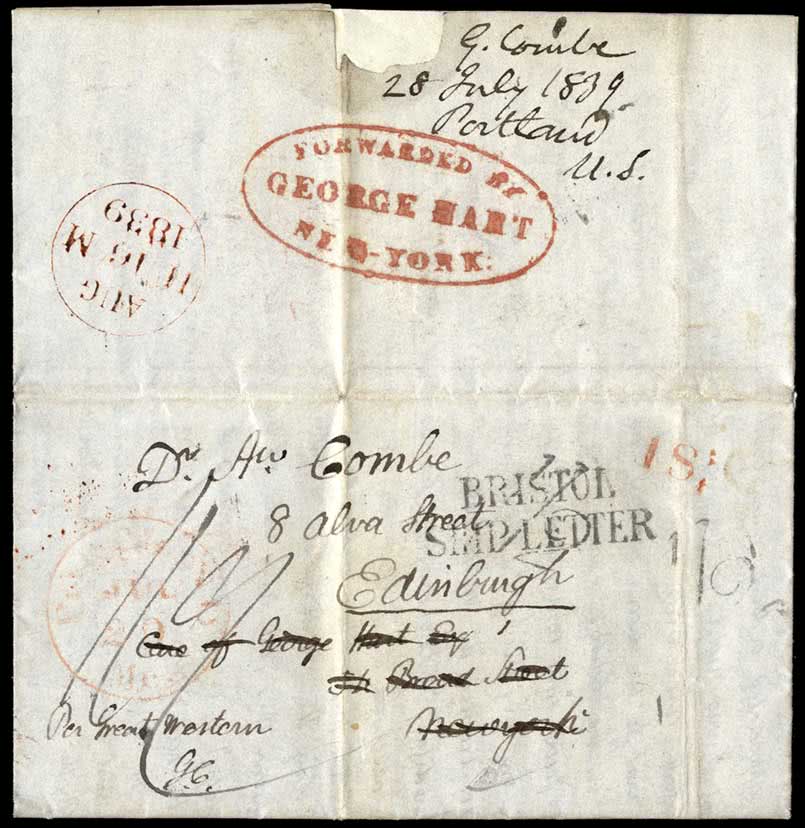 G. Combe
28 July 1839
Portland
U.S.
FORWARDED BY
GEORGE HART
NEW-YORK.
AUG
1839
Dr. Aw Combe
8 Alva Street
Edinburgh
Care of George Hart Esqr
Broad Street
Newyork
Per Great Western
G.C.
BRISTOL
SHIP LETTER
18